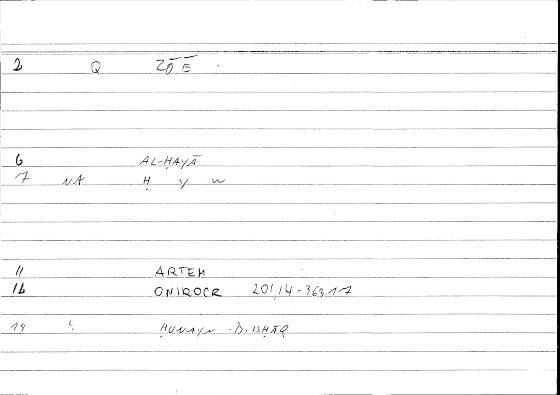 2 Q ZŌĒ .
6 AL-ḤAYĀ
7 NA Ḥ Y W
11 ARTEM
12 ONIROCR 201,14-363,17
14 ḤUNAYN .B. ISḤĀQ